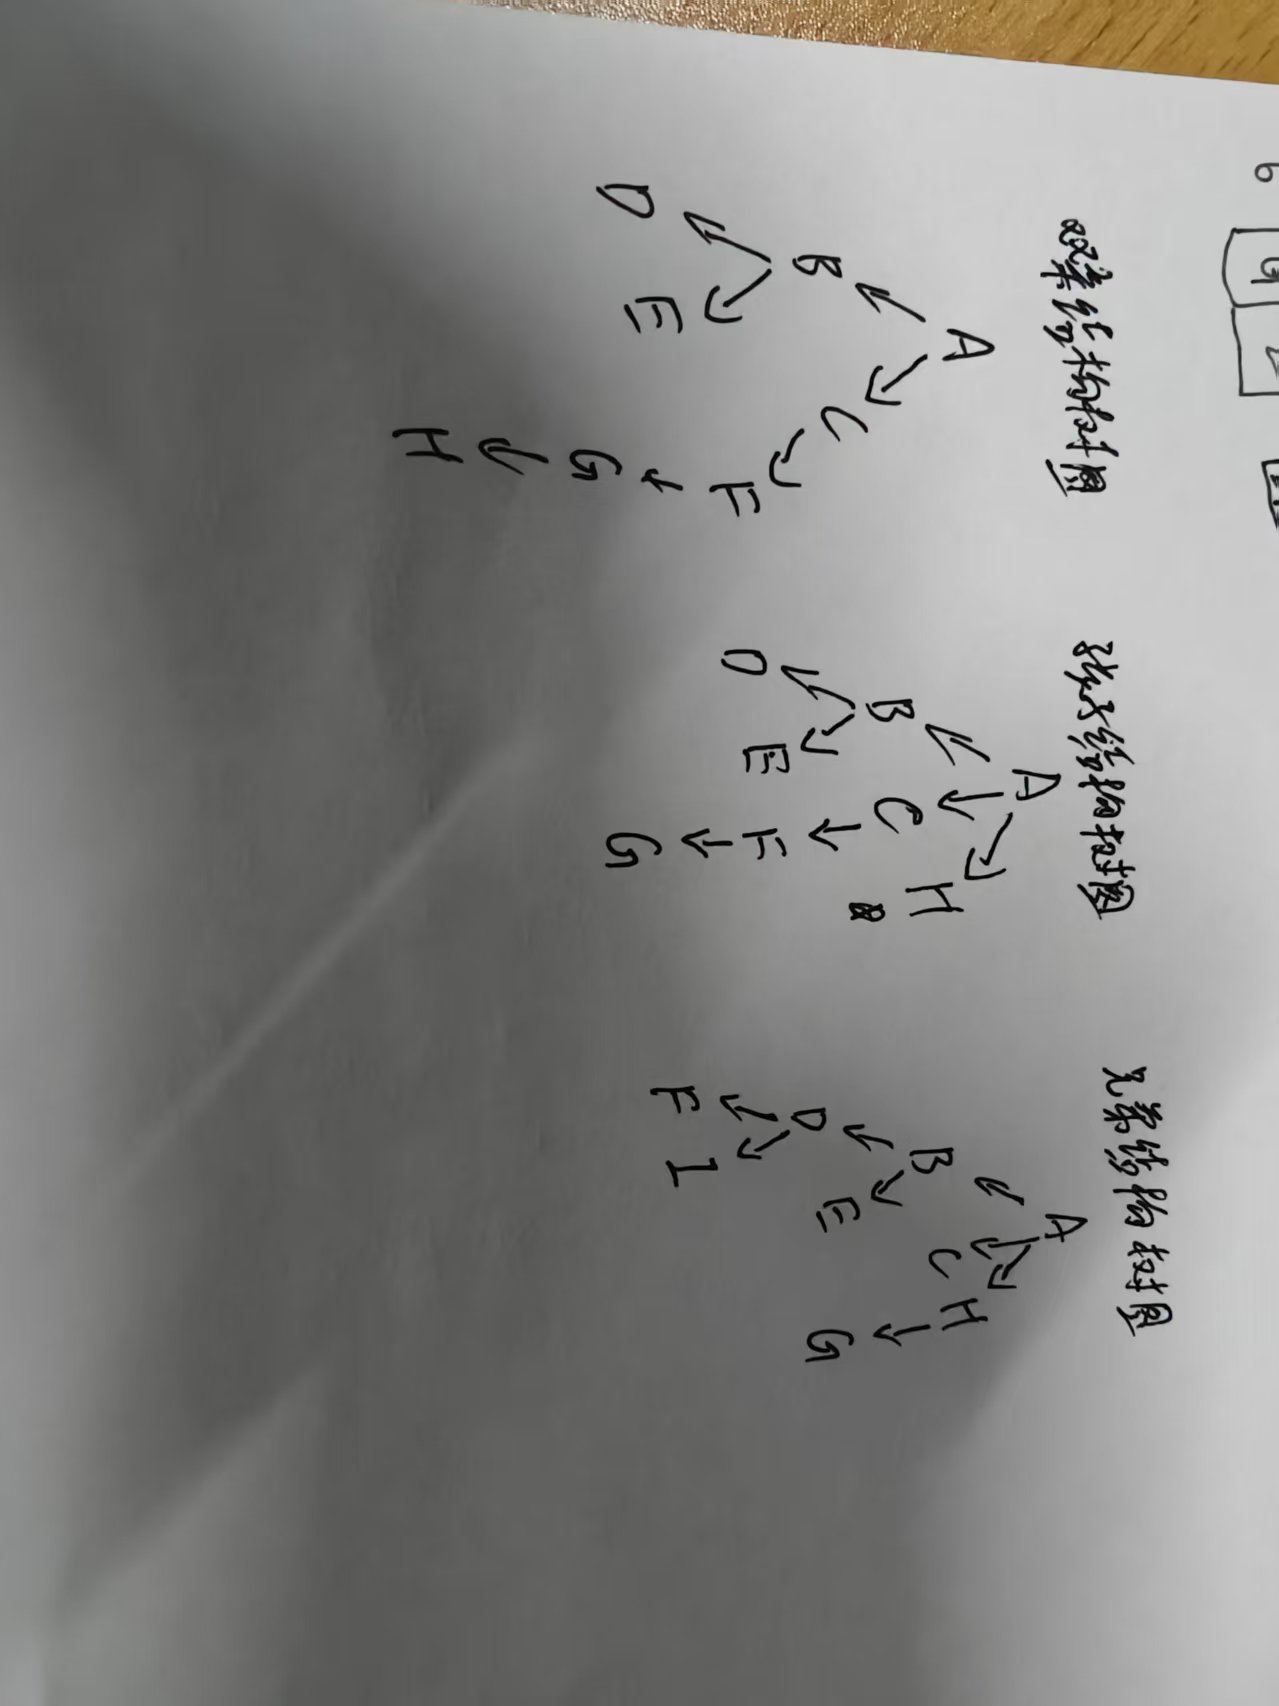 双亲结构树图
A
B C
D E F
G
H
孩子结构树图
A
B C H
D E F
G
兄弟结构树图
A
B C H
D E G
F I
6
G